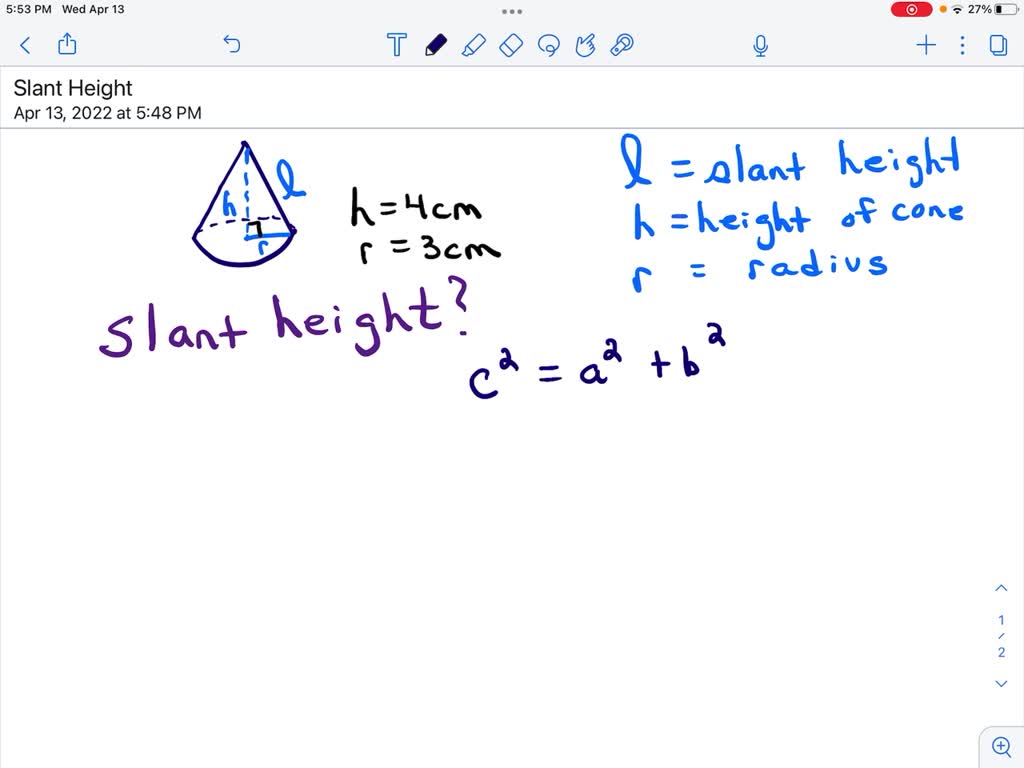 5:53 PM Wed Apr 13
27%
T
Slant Height
Apr 13, 2022 at 5:48 PM
l
h
r
h = 4cm
r = 3cm
l = slant height
h = height of cone
r = radius
slant height?
c² = a² + b²
1
/
2